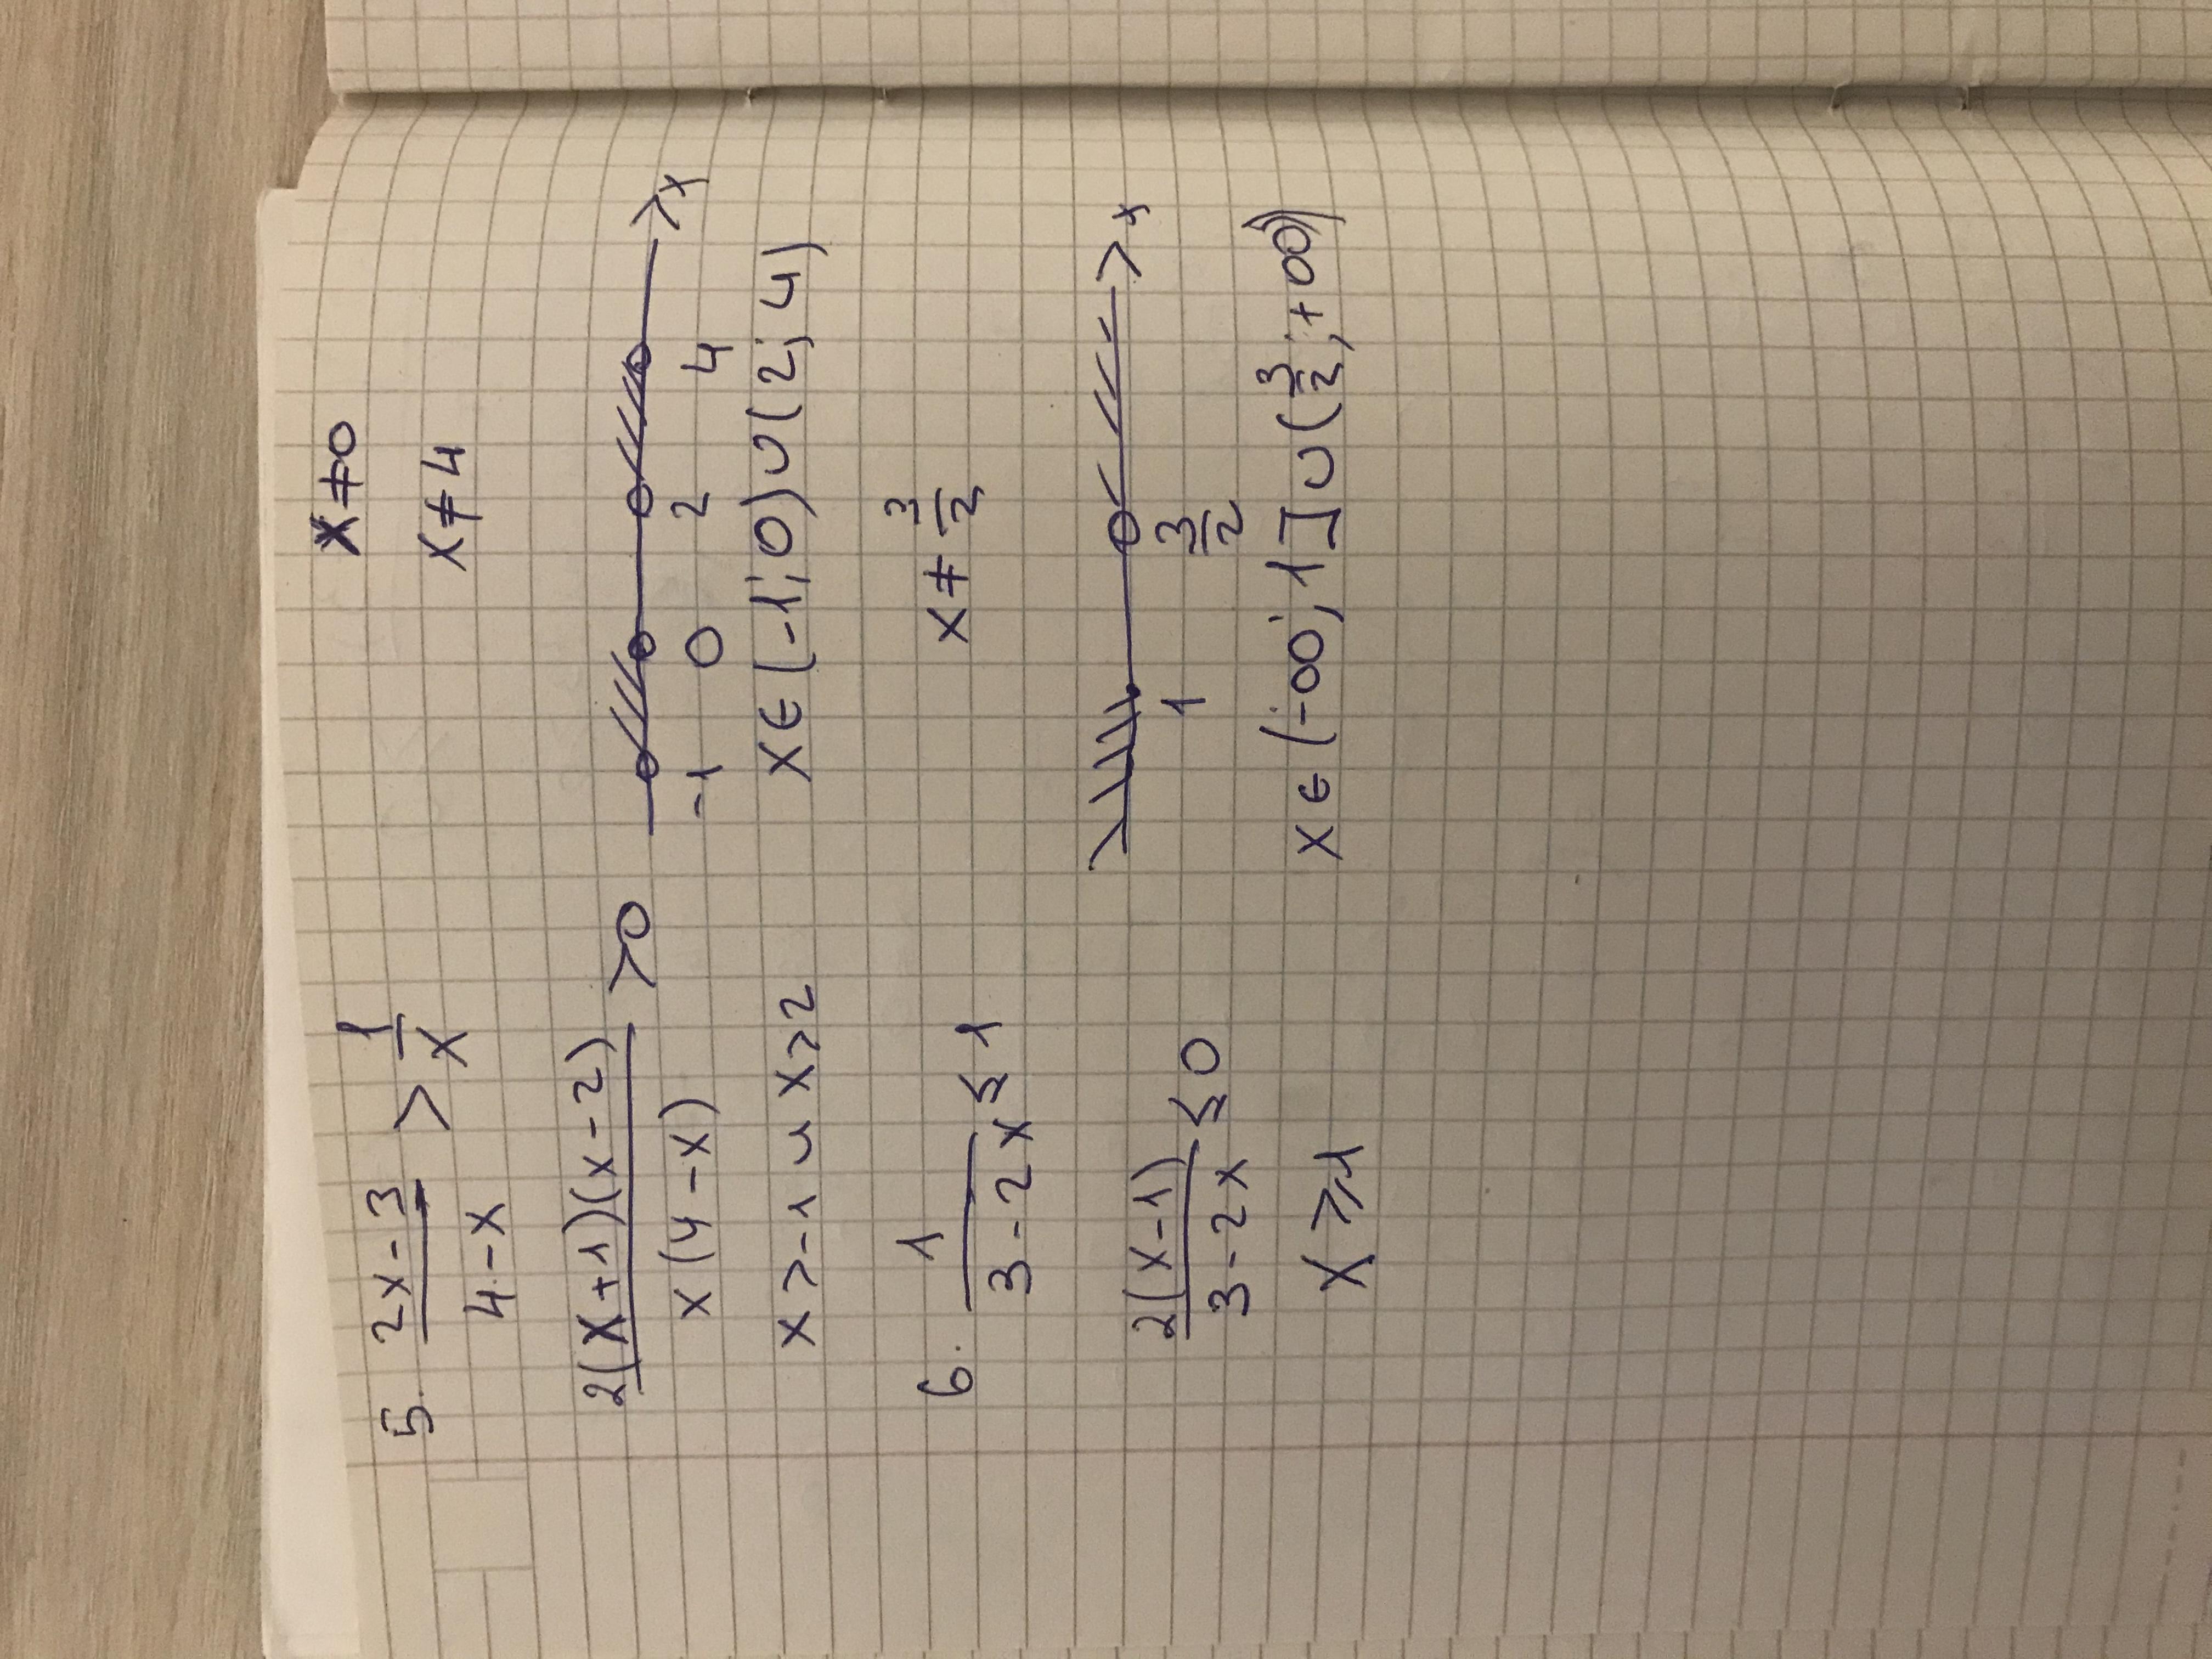 5. (2x-3)/(4-x) > 1/x   x≠0
x≠4
2(x+1)(x-2)/x(4-x) >0
-1 0 2 4 x
x>-1 и x>2   x∈(-1;0)∪(2;4)
6. 1/(3-2x) ≤ 1   x≠3/2
2(x-1)/(3-2x) ≤ 0
1 3/2 x
x⩾1   x∈(-∞;1]∪(3/2;+∞)